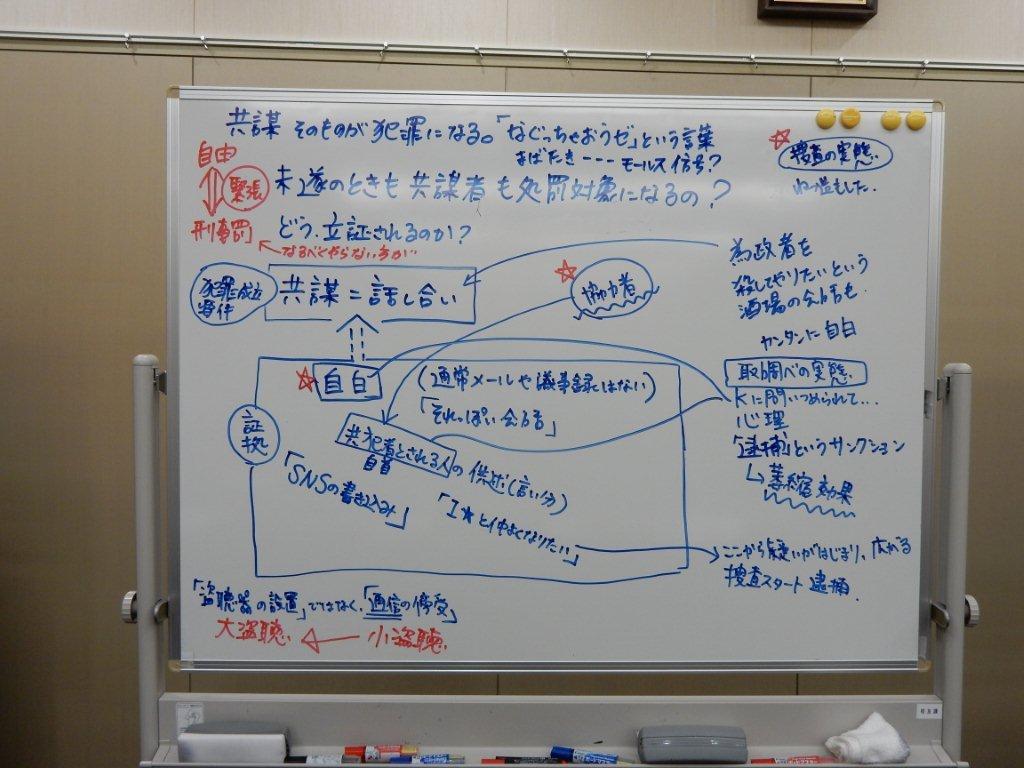 共謀 そのものが 犯罪になる。「なぐっちゃおうゼ」という言葉
まばたき --- モールス信号？
自由
緊張
刑事罰
未遂のときも 共謀者 も処罰対象になるの？
どう、立証されるのか？
なるべくやらない方が…
☆
捜査の実態
ねつ造もした..
犯罪成立
要件
共謀＝話し合い
☆
協力者
為政者を
殺してやりたいという
酒場の会話も
カンタンに自白
証拠
☆
自白
(通常メールや議事録はない)
「それっぽい会話」
共犯者とされる人の 供述(言い分)
自首
「SNSの書き込み」
「I☆と仲よくなりたい」
取り調べの実態
Kに問いつめられて…
心理
「逮捕」というサンクション
萎縮効果
ここから疑いがはじまり、広がる
捜査スタート 逮捕
「盗聴器の設置」ではなく、「通信の傍受」
大盗聴 ← 小盗聴